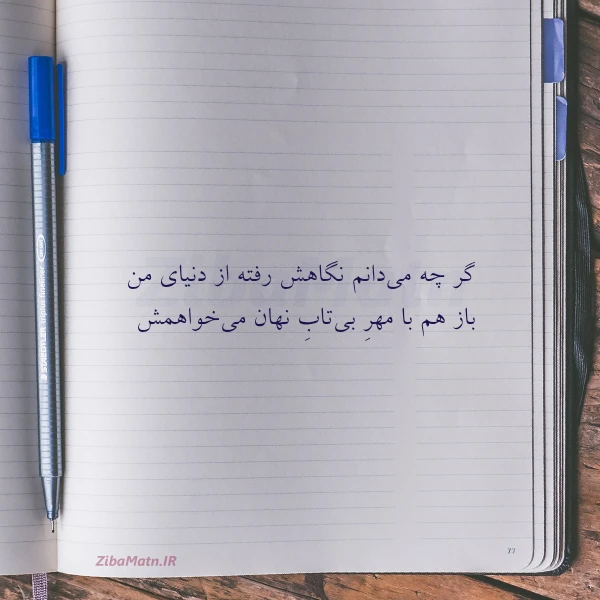 گر چه می‌دانم نگاهش رفته از دنیای من
باز هم با مهرِ بی‌تابِ نهان می‌خواهمش
ZibaMatn.IR